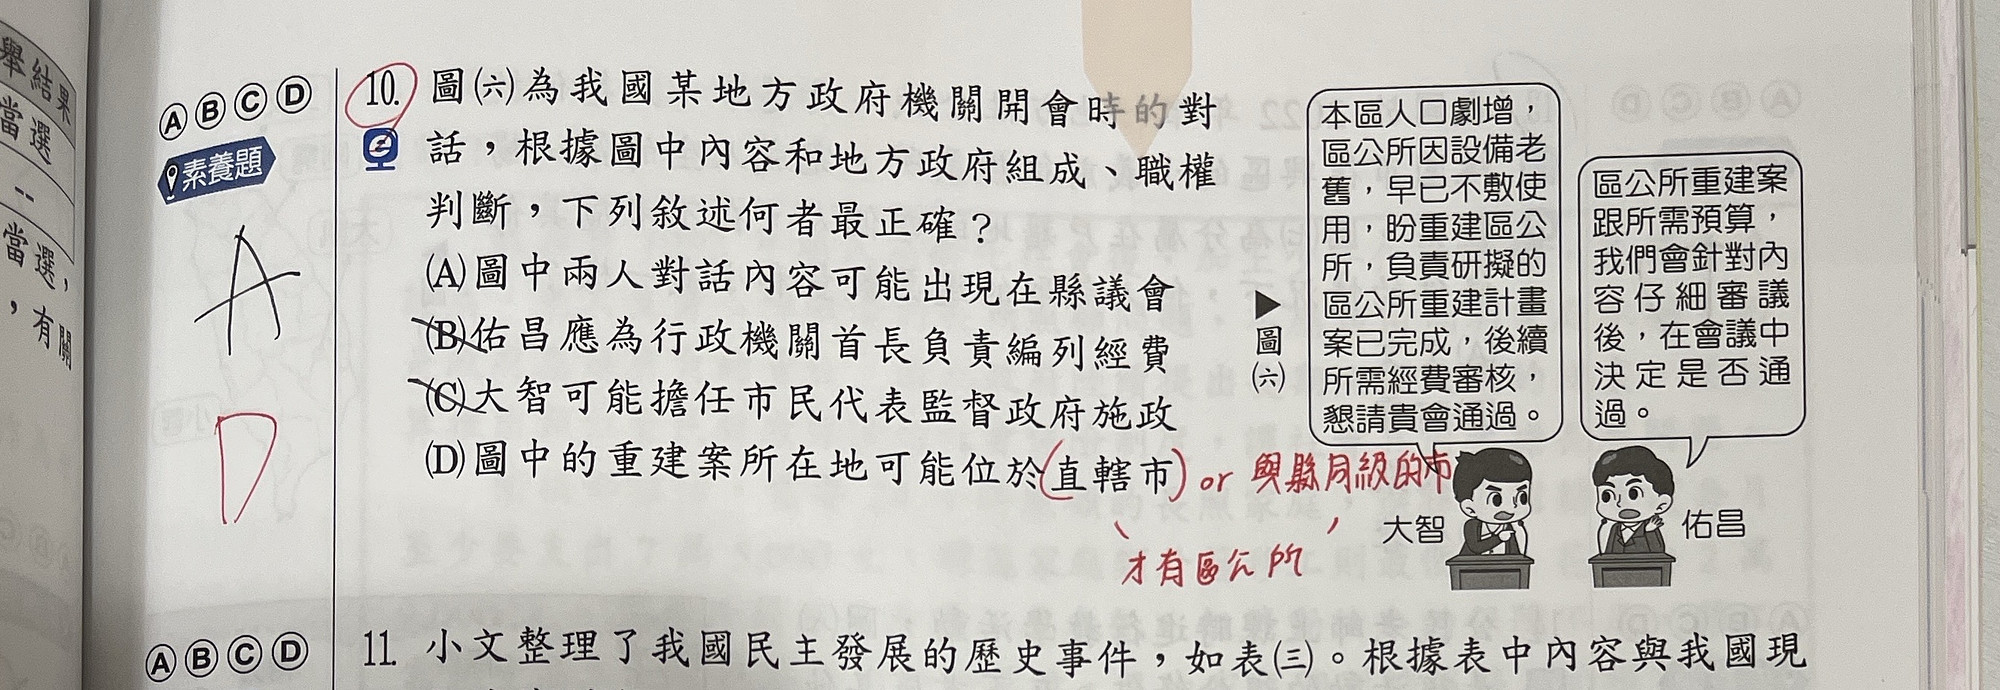 舉結果
當選
--
當選，
，有關
Ⓐ Ⓑ Ⓒ Ⓓ
素養題
A
D
10. 圖㈥為我國某地方政府機關開會時的對
話，根據圖中內容和地方政府組成、職權
判斷，下列敘述何者最正確？
(A)圖中兩人對話內容可能出現在縣議會
(B)佑昌應為行政機關首長負責編列經費
(C)大智可能擔任市民代表監督政府施政
(D)圖中的重建案所在地可能位於(直轄市) or 與縣同級的市
才有區公所
▶
圖
㈥
本區人口劇增，
區公所因設備老
舊，早已不敷使
用，盼重建區公
所，負責研擬的
區公所重建計畫
案已完成，後續
所需經費審核，
懇請貴會通過。
大智
區公所重建案
跟所需預算，
我們會針對內
容仔細審議
後，在會議中
決定是否通
過。
佑昌
Ⓐ Ⓑ Ⓒ Ⓓ
11. 小文整理了我國民主發展的歷史事件，如表㈢。根據表中內容與我國現